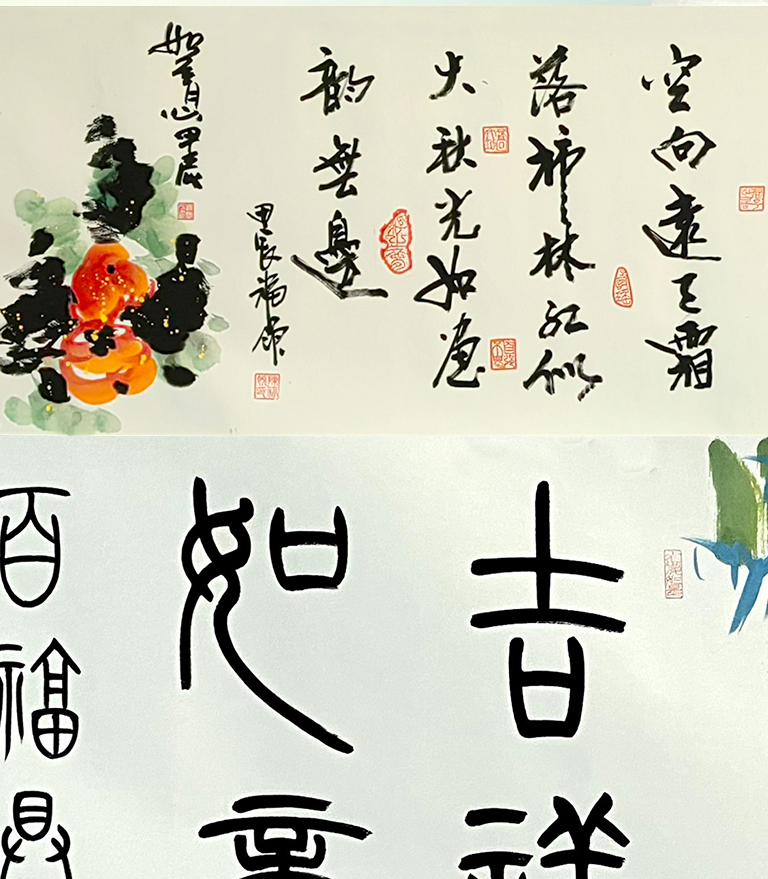 空向遠天霜
落柿林紅似
火秋光如畫
韵無邊
甲辰福
如意甲辰
吉祥
如意
百福具